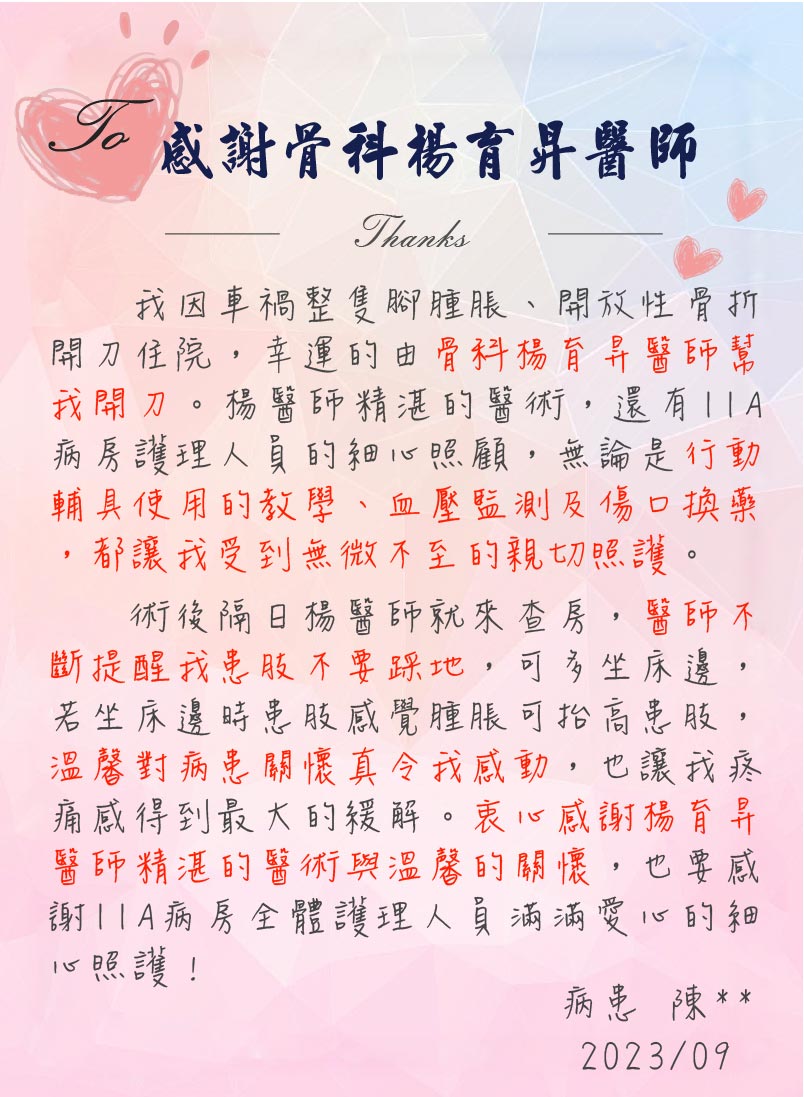 To 感謝骨科楊育昇醫師
Thanks
我因車禍整隻腳腫脹、開放性骨折
開刀住院，幸運的由骨科楊育昇醫師幫
我開刀。楊醫師精湛的醫術，還有11A
病房護理人員的細心照顧，無論是行動
輔具使用的教學、血壓監測及傷口換藥
，都讓我受到無微不至的親切照護。
術後隔日楊醫師就來查房，醫師不
斷提醒我患肢不要踩地，可多坐床邊，
若坐床邊時患肢感覺腫脹可抬高患肢，
溫馨對病患關懷真令我感動，也讓我疼
痛感得到最大的緩解。衷心感謝楊育昇
醫師精湛的醫術與溫馨的關懷，也要感
謝11A病房全體護理人員滿滿愛心的細
心照護！
病患 陳**
2023/09